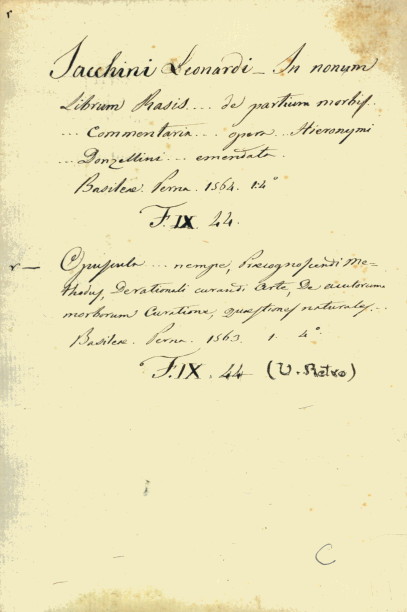 r
Jacchini Leonardi _ In nonum
Librum Rasis ... de partium morbis
... Commentaria ... opera ... Hieronymi
... Donzellini ... emendata.
Basileæ. Perna. 1564. 1. 4°
F. IX. 44.
r — Opuscula ... nempe, Præcognoscendi Me-
thodus, De rationali curandi Arte, De acutorum
morborum Curatione, Quæstiones naturales ...
Basileæ. Perna. 1563. 1. 4°.
F. IX. 44 (V. Retro)
C